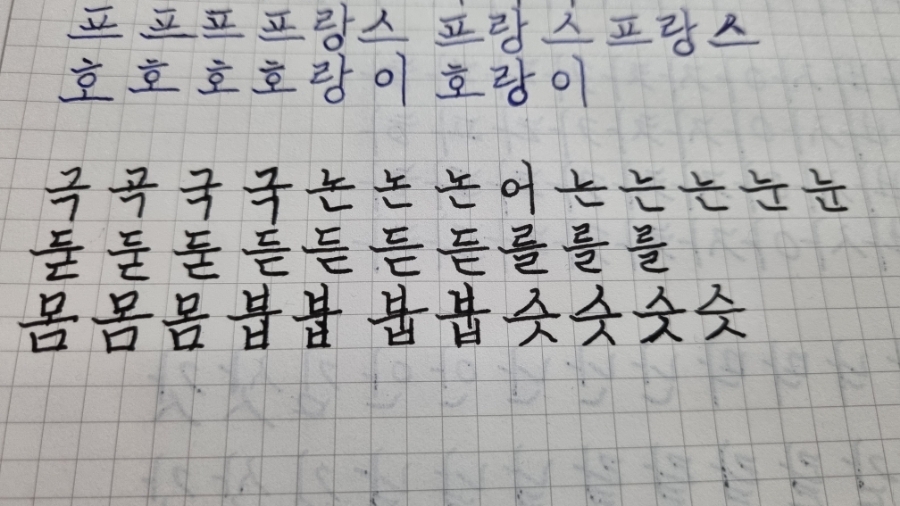 프 프 프 프 랑 스 프 랑 스 프 랑 스
호 호 호 호 랑 이 호 랑 이
극 곡 국 국 논 논 논 어 는 는 는 눈 눈
둗 둗 둗 듣 듣 듣 듣 를 를 를
몸 몸 몸 봅 봅 붑 붑 슷 슷 슷 슷